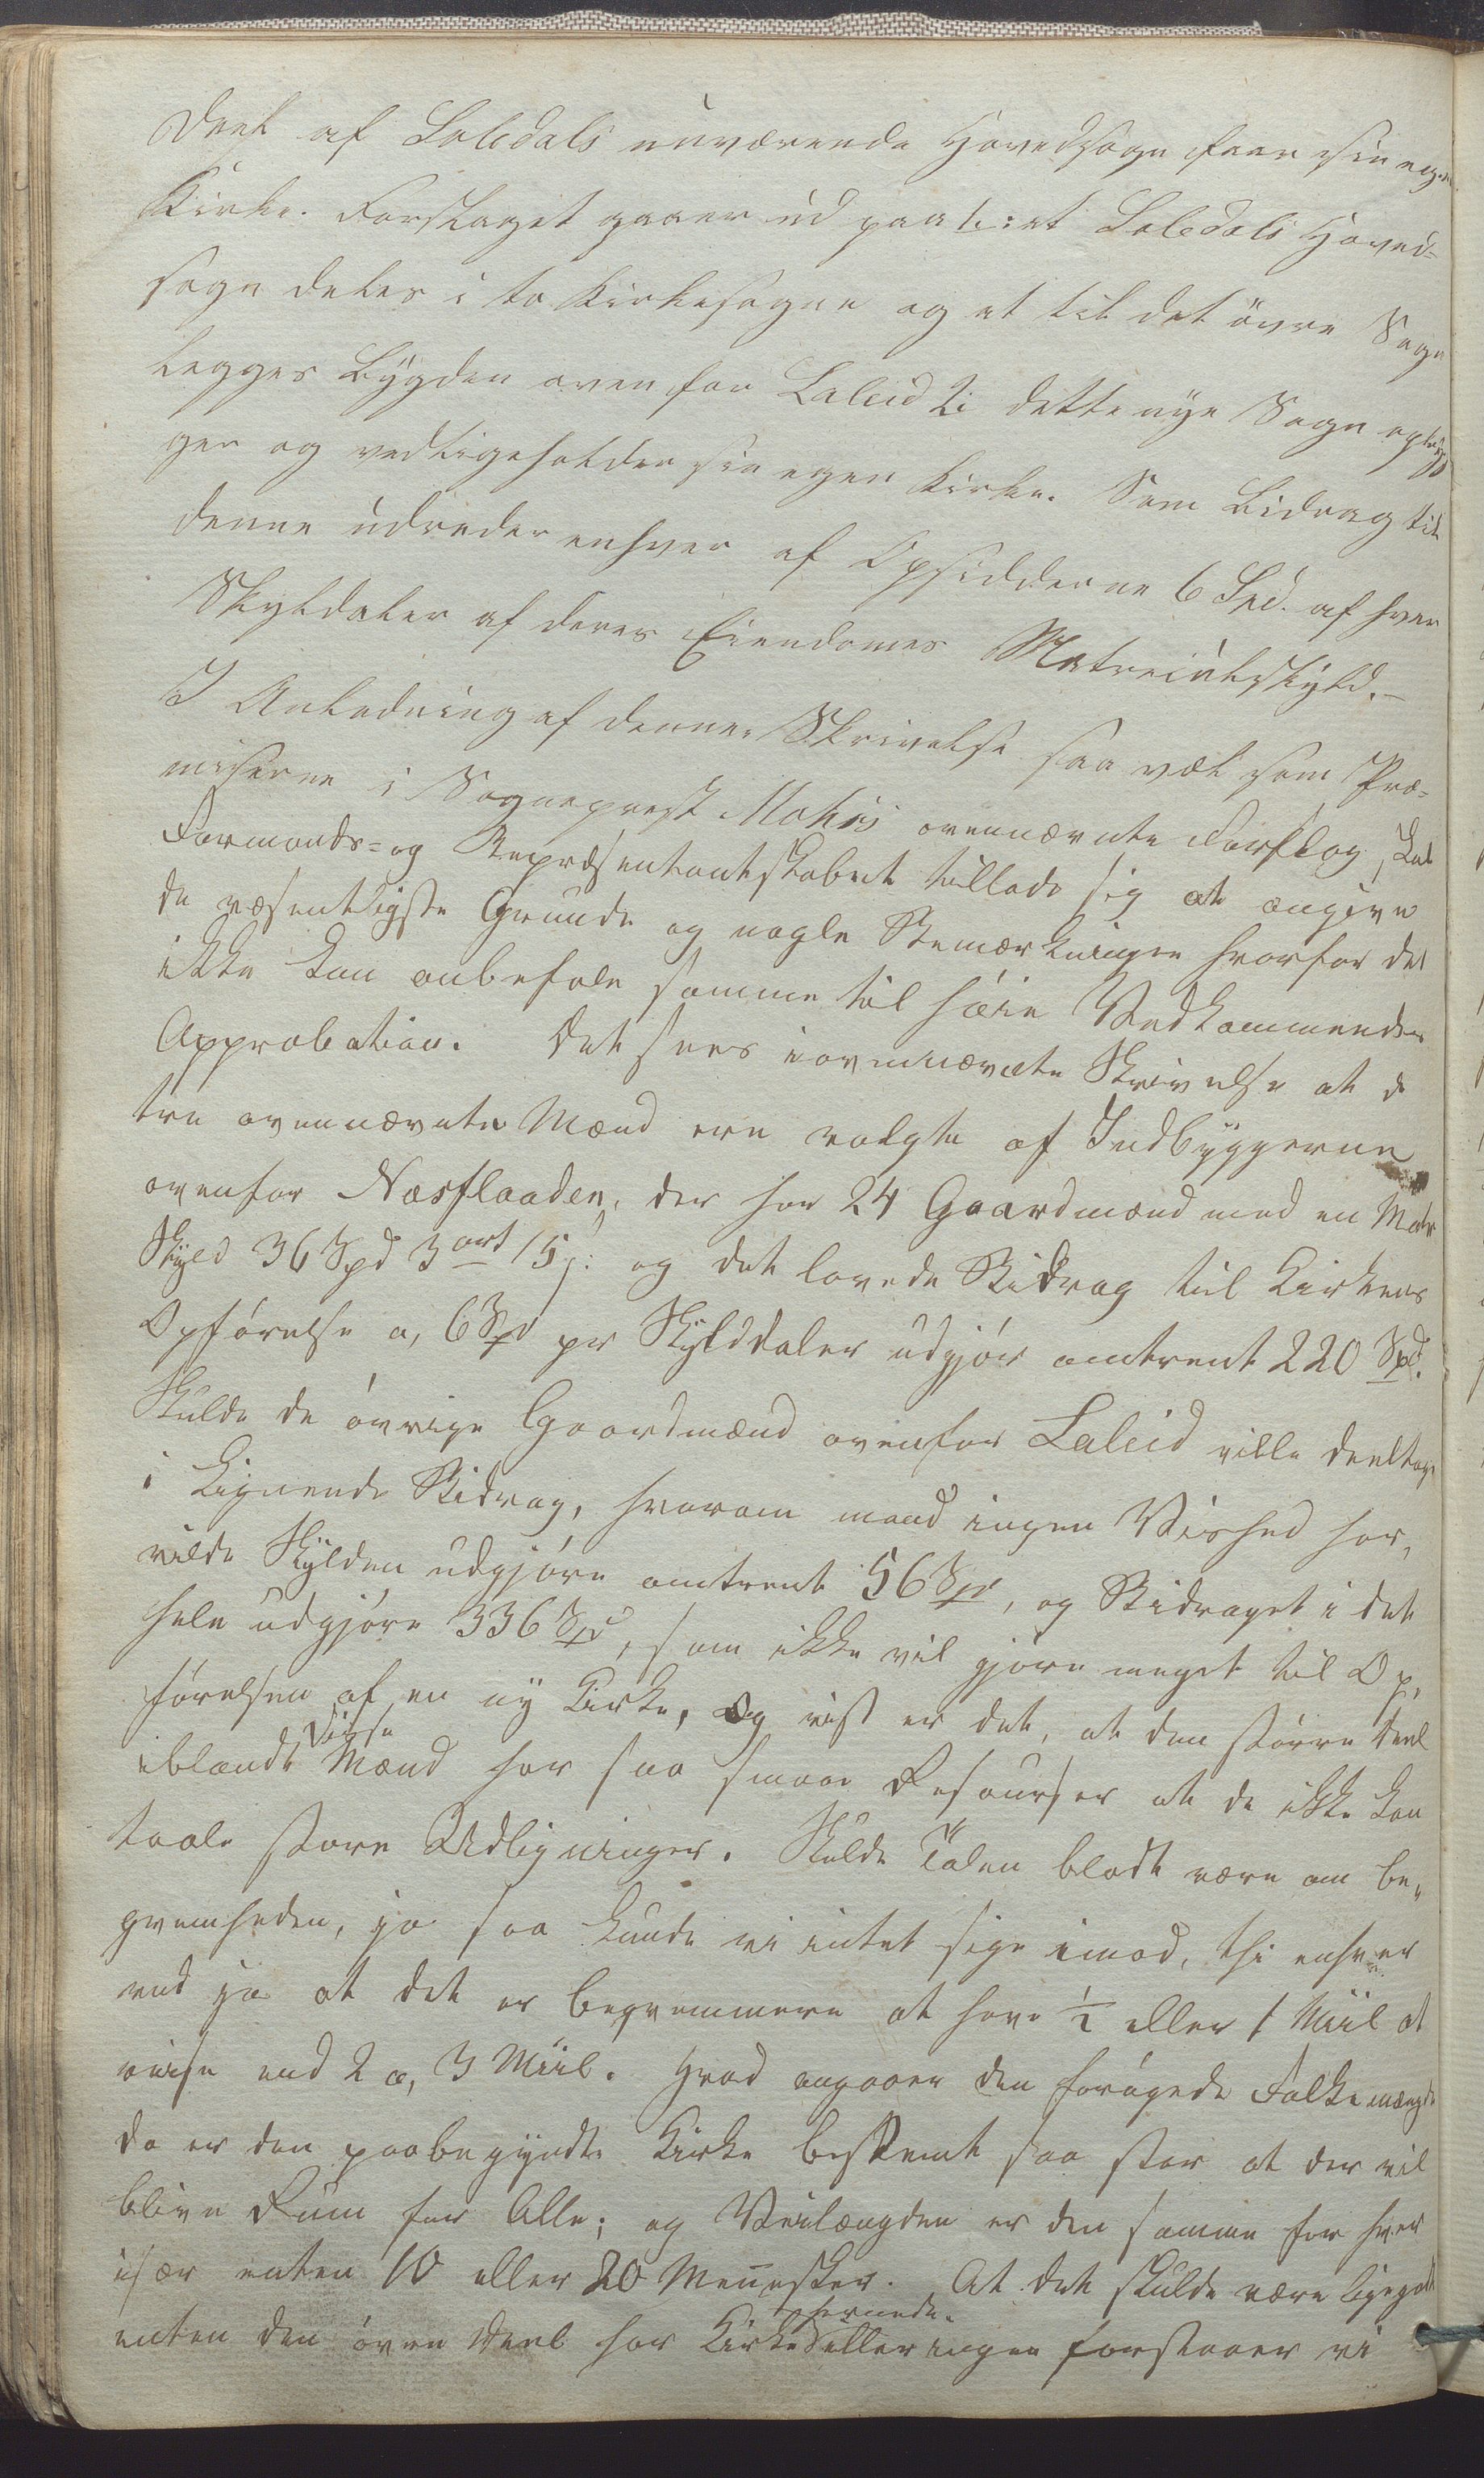 Deel af Suledals nuværende Hovedsogn faaer sin egen
Kirke. Forslaget gaaer ud paa: at Suledals Hoved-
sogn deles i to Kirkesogne og at til det övre Sogn
legges Bÿgden oven for Laleid. I dette nye Sogn opbyg-
ger og vedligeholder sin egen Kirke. Som Bidrag til
denne udreder enhver af Opsidderne 6 Spd. af hver
Skyldaler af deres Eiendomes Matrikulskyld.-
I Anledning af denne Skrivelse saa vel som Præ-
miserne i Sogneprest Mohrs ovennævnte Forslag, skal
Formands- og Repræsentantskabet tillade sig at angive
de væsentligste Grunde og nogle Bemærkninger hvorfor det
ikke kan anbefale samme til høie Vedkommendes
Approbation. Det sees i ovennævnte Skrivelse at de
tre ovennævnte Mænd ere valgte af Indbÿggerne
ovenfor Næsflaaden, der har 24 Gaardmænd med en Matr
Skyld 36 Spd 3 ort 15 s: og det lovede Bidrag til Kirkens
Opførelse a, 6 Spd pr Skylddaler udgjør omtrent 220 Spd.
Skulde de øvrige Gaardmænd ovenfor Laleid ville deeltage
i Lignende Bidrag, hvorom mand ingen Vished har,
vilde Skylden udgjøre omtrent 56 Spd, og Bidraget i det
hele udgjøre 336 Spd, som ikke vil gjøre meget til Op,
førelsen af en nÿ Kirke, Og vist er det, at den større Deel
iblandt Disse Mænd har saa smaae Resourser at de ikke kan
taale store Udligninger. Skulde Talen blodt være om be,,
qvemheden, ja saa kunde vi intet sige imod, thi enhver
ved ja at det er beqvemmere at have ½ eller 1 Miil at
reise end 2 a, 3 Miil. Hvad angaaer den forøgede Folkemængde
da er den paabegÿndte Kirke bestemt saa stor at der vil
blive Rum for Alle; og Veilængden er den samme for hver
især enten 10 eller 20 Mennesker. At det skulde være ligegodt
enten den øvre Deel har Kirke hernede eller ingen forstaaer vi